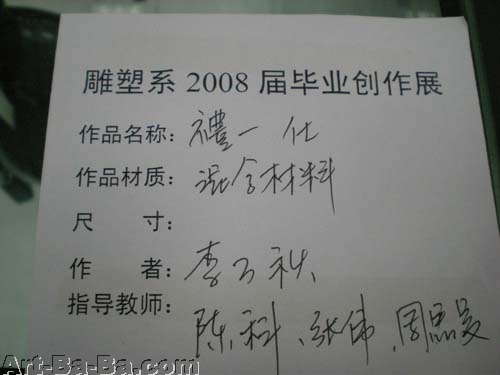 雕塑系 2008 届毕业创作展
作品名称：禮一 仕
作品材质：混合材料
尺 寸：
作 者：李 秋
指导教师：
陈科、张伟、周思旻
Art-Ba-Ba.com